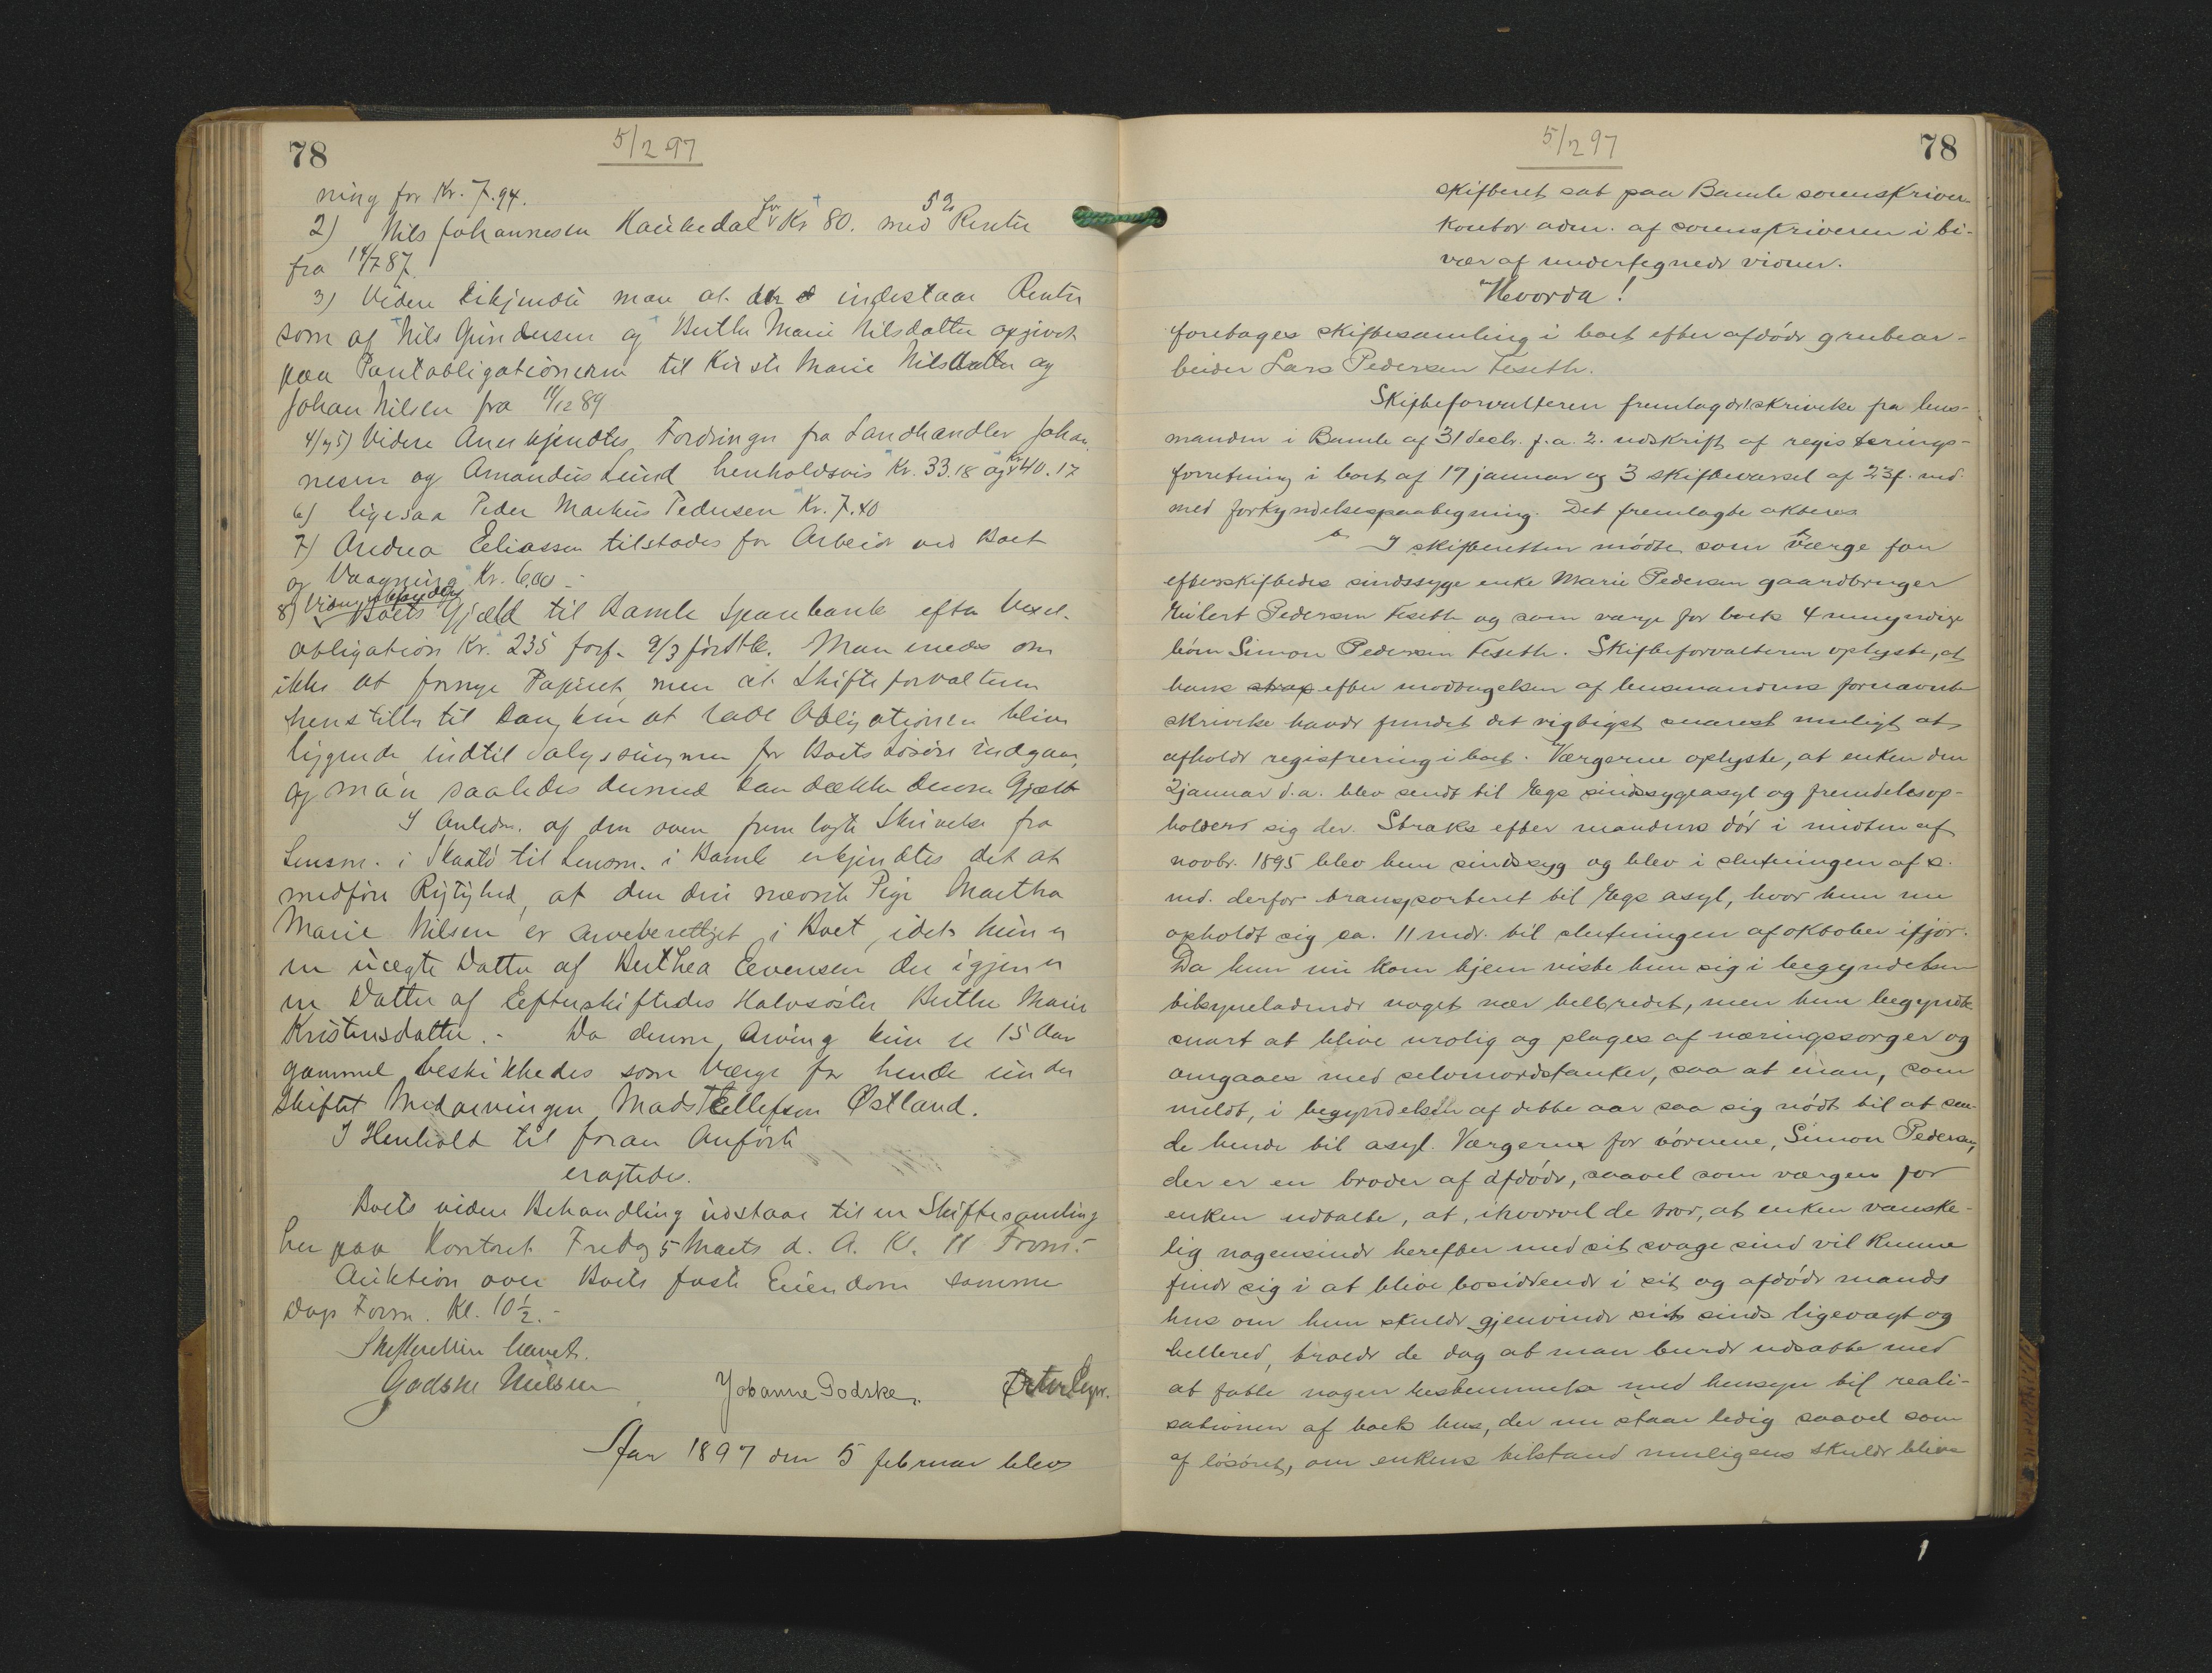 78
5/2 97
ning for Kr. 7.94.
2) Nils Johannesen Haukedal for Kr 80. med 5% Renter
fra 14/7 87.
3) Videre tilkjendte man at der indestaar Renter
som af Nils Gundersen og Berthe Marie Nilsdatter opgivet
paa Pantobligationerne til Kirsti Marie Nilsdatter og
Johan Nilsen fra 11/12 89
4) og 5) Videre Anerkjendtes Fordringer fra Landhandler Johan
nesen og Amandus Lund henholdsvis Kr. 33.18 og Kr 40.17
6) ligesaa Peder Markus Pedersen Kr. 7.40
7) Andrea Eeliassen tilstodes for Arbeide ved Boet
og Vaagning Kr. 6.00.-
8) Boets Gjæld til Bamle Sparebank efter Vexel-
obligation Kr. 235 forf. 9/3 førstk. Man enedes om
ikke at fornye Papiret men at Skifteforvalteren
henstiller til Banken at lade Obligationen blive
liggende indtil Salgssummen for Boets Løsøre indgaar,
og man saaledes dermed kan dække denne Gjæld
I Anledn. af den oven fremlagte Skrivelse fra
Lensm. i Skaatø til Lensm. i Bamle erkjendtes det at
medføre Rigtighed, at den deri nævnte Pige Martha
Marie Nilsen er arveberettiget i Boet, idet hun er
en uægte Datter af Berthea Eevensen der igjen er
en Datter af Eefterskiftedes Halvsøster Berthe Marie
Kristensdatter.- Da denne Arving kun er 15 Aar
gammel beskikkedes som Værge for hende under
Skiftet Medarvingen Mads Tellefsen Østland.
I Henhold til foran Anførte
eragtedes.
Boets videre Behandling udstaar til en Skiftesamling
her paa Kontoret Fredag 5 Marts d. A. Kl. 11 Form.-
Auktion over Boets faste Eiendom samme
Dags Form. Kl. 10 1/2.-
Skifteretten hævet.
Godske Nielsen Johanne Godske.
Aar 1897 den 5 februar blev
5/2 97
78
skifteret sat paa Bamle sorenskriver-
kontor adm. af sorenskriveren i bi-
vær af undertegnede vidner.
Hvorda!
foretoges skiftesamling i boet efter afdøde grubear-
beider Lars Pedersen Feseth.
Skifteforvalteren fremlagde 1. skrivelse fra lens-
manden i Bamle af 31 decbr. f.a. 2. udskrift af registerings-
forretning i boet af 19 januar og 3 skiftevarsel af 23 f. md.
med forkyndelsespaategning. Det fremlagte akteres
I skifteretten mødte som værge for
efterskiftedes sindssyge enke Marie Pedersen gaardbruger
Eilert Pedersen Feseth og som værge for boets 4 umyndige
børn Simon Pedersen Feseth. Skifteforvalteren oplyste, at
hans strax efter modtagelsen af lensmandens fornævnte
skrivelse havde fundet det vigtigst snarest muligt at
afholde registrering i boet. Værgerne oplyste, at enken den
2 januar d.a. blev sendt til Egs sindssygeasyl og fremdeles op-
holder sig der. Straks efter mandens død i midten af
novbr. 1895 blev hun sindssyg og blev i slutningen af s.
md. derfor transporteret til Egs asyl, hvor hun nu
opholdt sig ca. 11 mdr. til slutningen af oktober ifjor.
Da hun nu kom hjem viste hun sig i begyndelsen
tilsyneladende noget nær helbredet, men hun begyndte
snart at blive urolig og plages af næringssorger og
omgaaes med selvmordstanker, saa at man, som
meldt, i begyndelsen af dette aar saa sig nødt til at sen-
de hende til asyl. Værgerne for børnene, Simon Pedersen,
der er en broder af afdøde, saavel som værgen for
enken udtalte, at, ihvorvel de tror, at enken vanske-
lig nogensinde herefter med sit svage sind vil kunne
finde sig i at blive bosiddende i sit og afdøde mands
hus om hun skulde gjenvinde sit sinds ligevægt og
helbred, troede de dog at man burde udsætte med
at fatte nogen bestemmelse med hensyn til reali-
sationen af boets hus, der nu staar ledig saavel som
af løsøret, om enkens tilstand muligens skulde blive